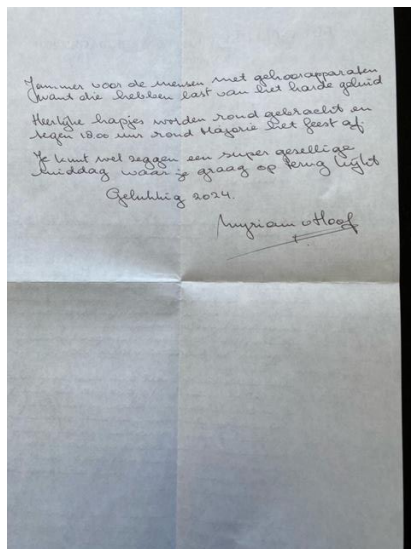 Jammer voor de mensen met gehoorapparaten
want die hebben last van het harde geluid
Heerlijke hapjes worden rond gebracht en
tegen 18.00 uur rond Marjorie het feest af.
Je kunt wel zeggen een super gezellige
middag waar je graag op terug
Gelukkig 2024.
Myriam v Hoof